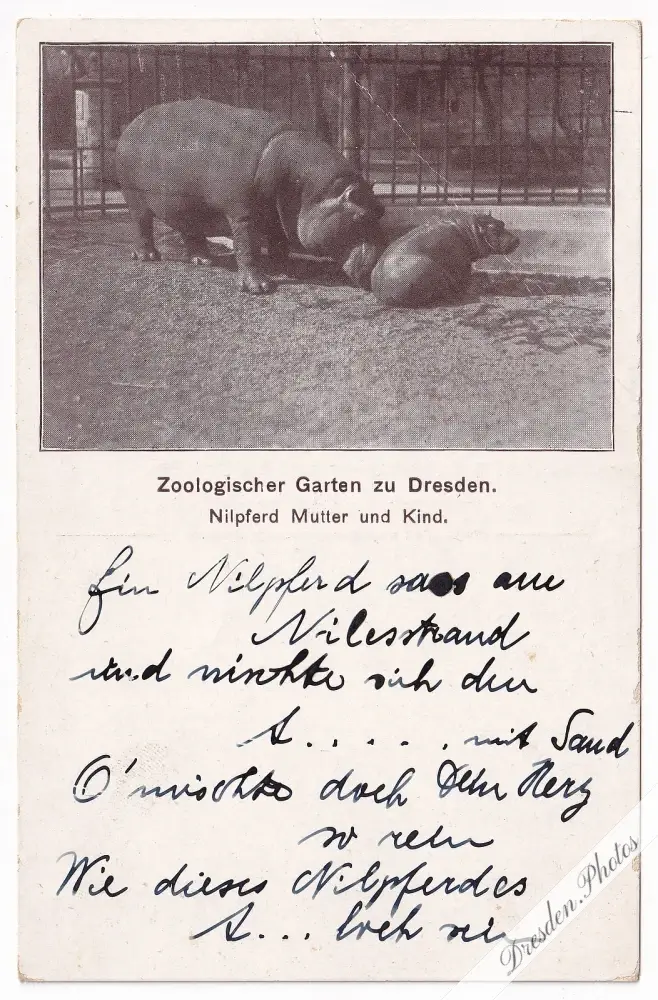 Zoologischer Garten zu Dresden.
Nilpferd Mutter und Kind.
Ein Nilpferd sass am
Nilesstrand
und wischte sich den
A..... mit Sand
O' möchte doch Dein Herz
so rein
Wie dieses Nilpferdes
A... loch sein
Dresden.Photos